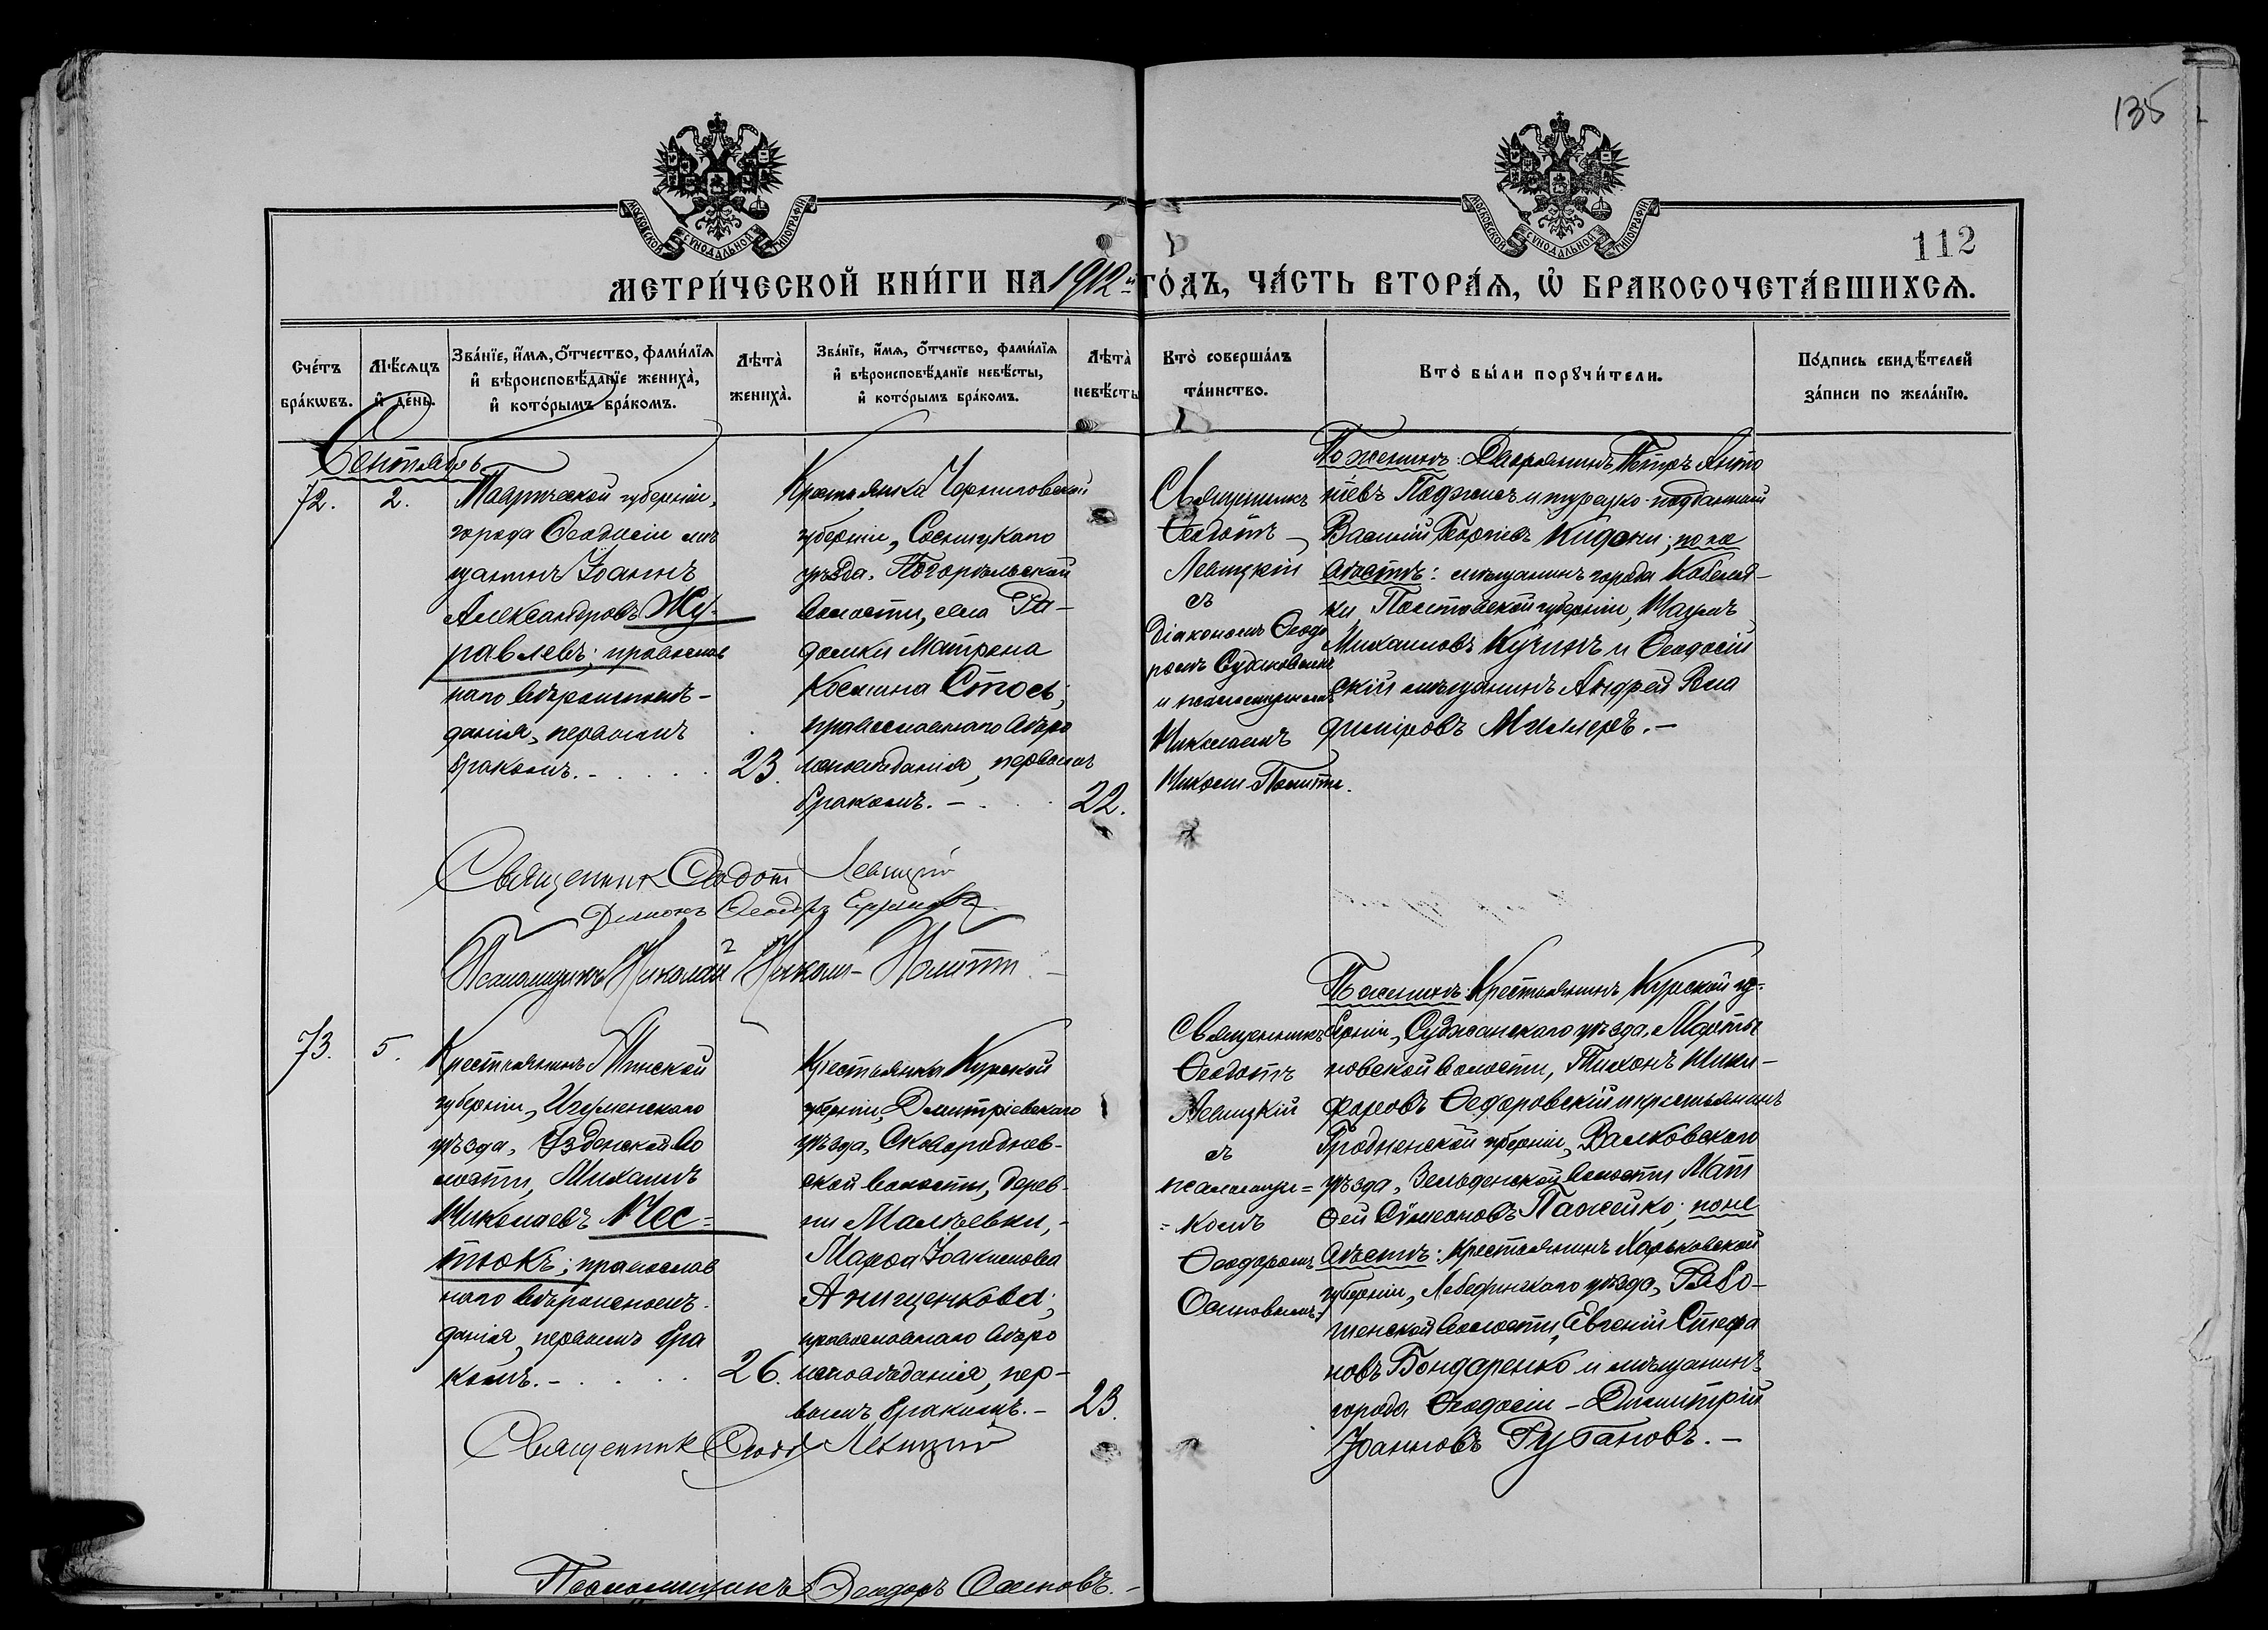 135
МОСКОВСКОЙ СУНОДАЛЬНОЙ ТИПОГРАФІИ
МОСКОВСКОЙ СУНОДАЛЬНОЙ ТИПОГРАФІИ
112
МЕТРИ́ЧЕСКОЙ КНИ́ГИ НА 1912й ГО́ДЪ, ЧА́СТЬ ВТОРА́Я, Ѡ҆ БРАКОСОЧЕТА́ВШИХСЯ.
Сче́тъ
бра́кѡвъ.
Мѣ́сяцъ
и҆ де́нь.
Зва́нїе, и҆́мя, ѻ҆́тчество, фами́лїя
и҆ вѣроисповѣ́данїе жениха̀,
и҆ кото́рымъ бра́комъ.
Лѣта̀
жениха̀.
Зва́нїе, и҆́мя, ѻ҆́тчество, фами́лїя
и҆ вѣроисповѣ́данїе невѣ́сты,
и҆ кото́рымъ бра́комъ.
Лѣта̀
невѣ́сты
Кто̀ соверша́лъ
та́инство.
Кто̀ бы́ли порꙋчи́тели.
По́дпись свидѣ́телей
за́писи по жела́нїю.
Сентябрь
72.
2.
Таврической губерніи,
города Ѳеодосіи мѣ
щанинъ Іоаннъ
Александровъ Жу-
равлевъ; православ
наго вѣроисповѣ-
данія, первымъ
бракомъ. -
23.
Крестьянка Черниговской
губерніи, Сосницкаго
уѣзда,
волости, села Ра-
домки Матрена
Космина Стось;
православнаго вѣро
исповѣданія, первымъ
бракомъ. -
22.
Священникъ
Ѳеодотъ
Левицкій
съ
діакономъ Ѳеодо
ромъ
и псаломщикомъ
Николаемъ
Николи-Политти.
По женихѣ: Дворянинъ Петръ Анто
ніевъ и турецко-подданный
Василій Георгіевъ Кидони; по не
вѣстѣ: мѣщанинъ города Кобеля-
ки, Полтавской губерніи, Наумъ
Михаиловъ Кучинъ и Ѳеодосій
скій мѣщанинъ Андрей Вла
диміровъ Миллеръ. -
Священникъ Ѳеодотъ Левицкій
Діаконъ Ѳеодоръ
Псаломщикъ Николай Николи-Политти.
73.
5.
Крестьянинъ Минской
губерніи, Игуменскаго
уѣзда, Узденской во
лости, Михаилъ
Николаевъ Нес-
тюкъ; православ
наго вѣроисповѣ-
данія, первымъ бра
комъ. -
26.
Крестьянка Курской
губерніи, Дмитріевскаго
уѣзда, Сковороднев-
ской волости, дерев-
ни Малѣевки,
Марѳа Іоакимова
Анищенкова;
православнаго вѣро
исповѣданія, пер-
вымъ бракомъ. -
23.
Священникъ
Ѳеодотъ
Левицкій
съ
псаломщи=
=комъ
Ѳеодоромъ
Осиповымъ
По женихѣ: Крестьянинъ Курской гу-
берніи, Суджанскаго уѣзда, Марты
новской волости, Тихонъ Ники-
форовъ Ѳедоровскій и крестьянинъ
Гродненской губерніи, Волковскаго
уѣзда, Зельвенской волости Мат
ѳей Сѵмеоновъ Пажейко; по не
вѣстѣ: Крестьянинъ Харьковской
губерніи, Лебединскаго уѣзда, Рябо-
шенской волости, Евгеній Стефа
новъ Бондаренко и мѣщанинъ
города Ѳеодосіи - Димитрій
Іоанновъ Рубановъ. -
Священникъ Ѳеодот Левицкій
Псаломщикъ Ѳеодоръ Осиповъ. -